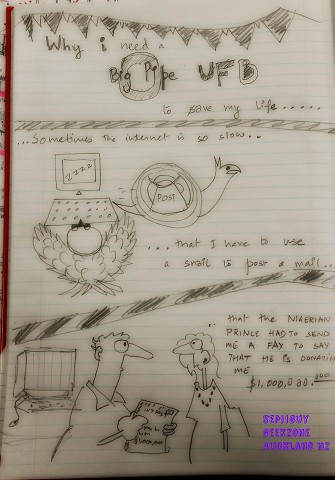 Why i need a
Big Pipe UFB
to save my life.....
...Sometimes the internet is so slow..
ZZZZ
POST
....that I have to use
a snail to post a mail..
that the NIGERIAN
PRINCE HAD TO SEND
ME A FAX TO SAY
THAT HE IS DONATING
ME
$1,000,000.000
SEPIIGUY
GEEKZONE
AUCKLAND NZ